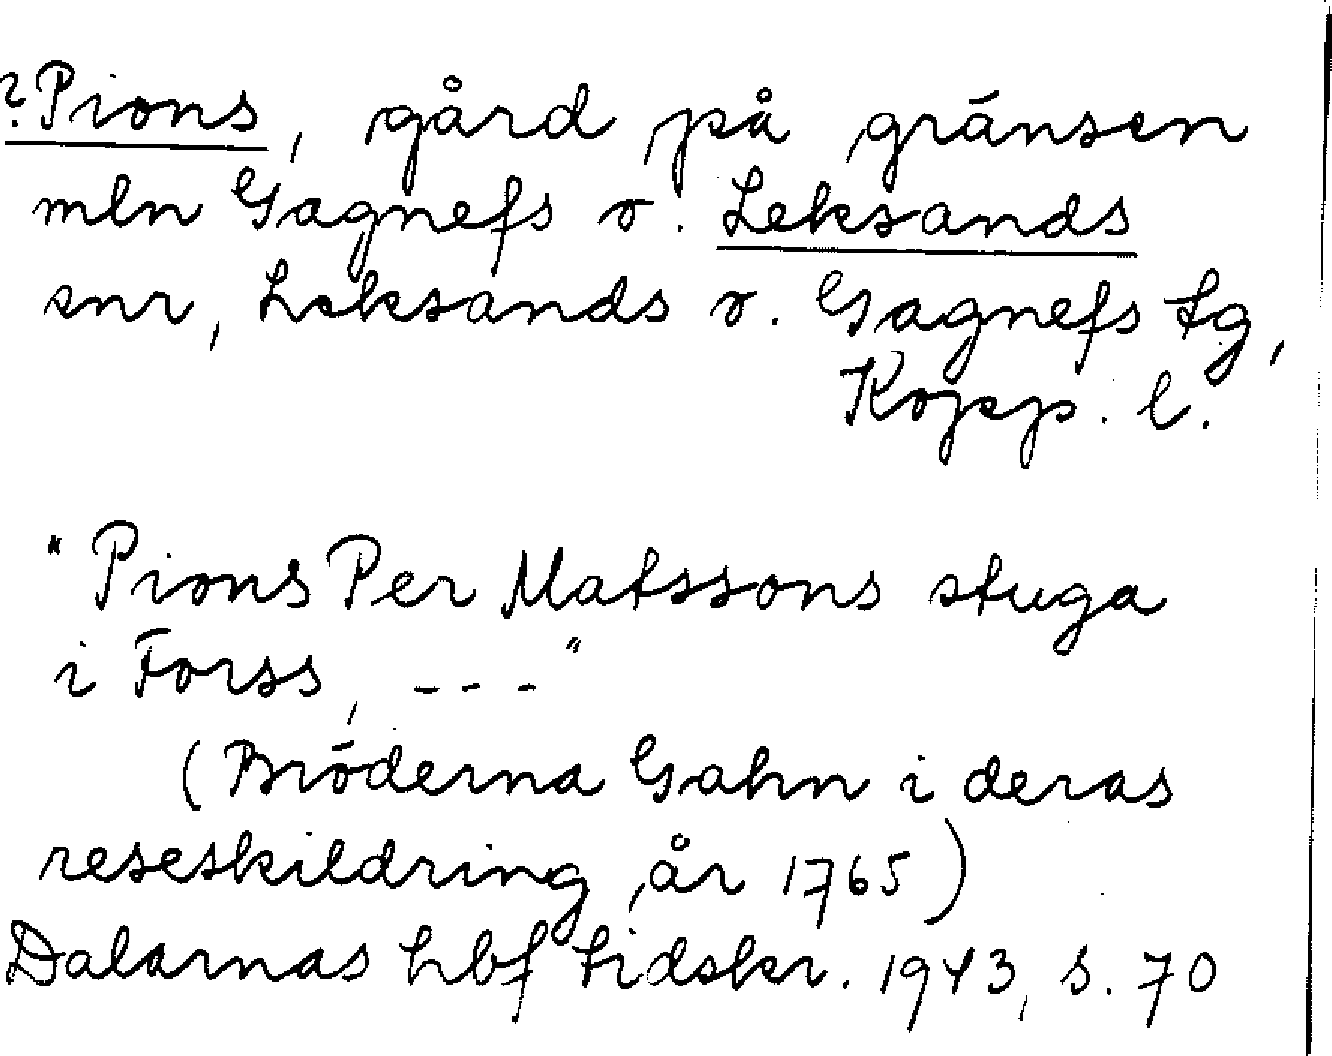 ?Pions, gård på gränsen
mln Gagnefs o. Leksands
snr, Leksands o. Gagnefs tg,
Kopp. l.
"Pions Per Matssons stuga
i Forss, - - - "
(Bröderna Gahn i deras
reseskildring, år 1765)
Dalarnas hbf tidskr. 1943, s. 70